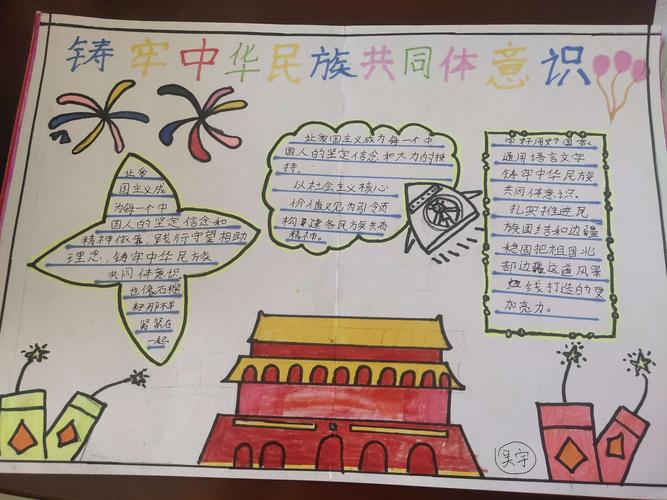 铸牢中华民族共同体意识
让爱
国主义成
为每一个中
国人的坚定信念和
精神依靠，践行守望相助
理念，铸牢中华民族
共同体意识
也像石榴
籽那样
紧紧在
一起
让爱国主义成为每一个中
国人的坚定信念和大力的扶
持。
以社会主义核心
价值义见为引领
构建各民族共有
精神。
学好用好国家
通用语言文字
铸牢中华民族
共同体意识。
扎实推进民
族团结和边疆
稳固把祖国北
部边疆这道风景
线打造的更
加亮力。
吴宇